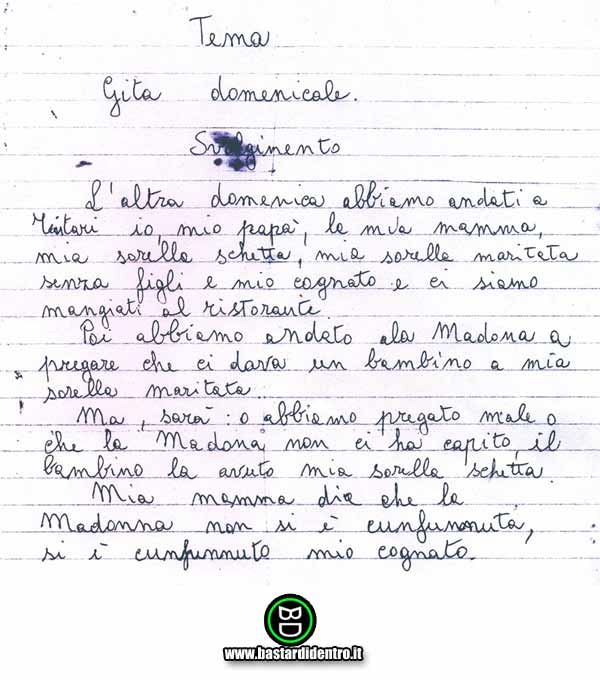 Tema
Gita domenicale.
Svolgimento
L'altra domenica abbiamo andati a
Tintari io, mio papà, la mia mamma,
mia sorella schetta, mia sorella maritata
senza figli e mio cognato e ci siamo
mangiati al ristorante.
Poi abbiamo andato ala Madona a
pregare che ci dava un bambino a mia
sorella maritata.
Ma, sarà: o abbiamo pregato male o
che la Madona non ci ha capito, il
bambino la avuto mia sorella schetta.
Mia mamma dice che la
Madonna non si è cunfunnuta,
si è cunfunnuto mio cognato.
BD
www.bastardidentro.it